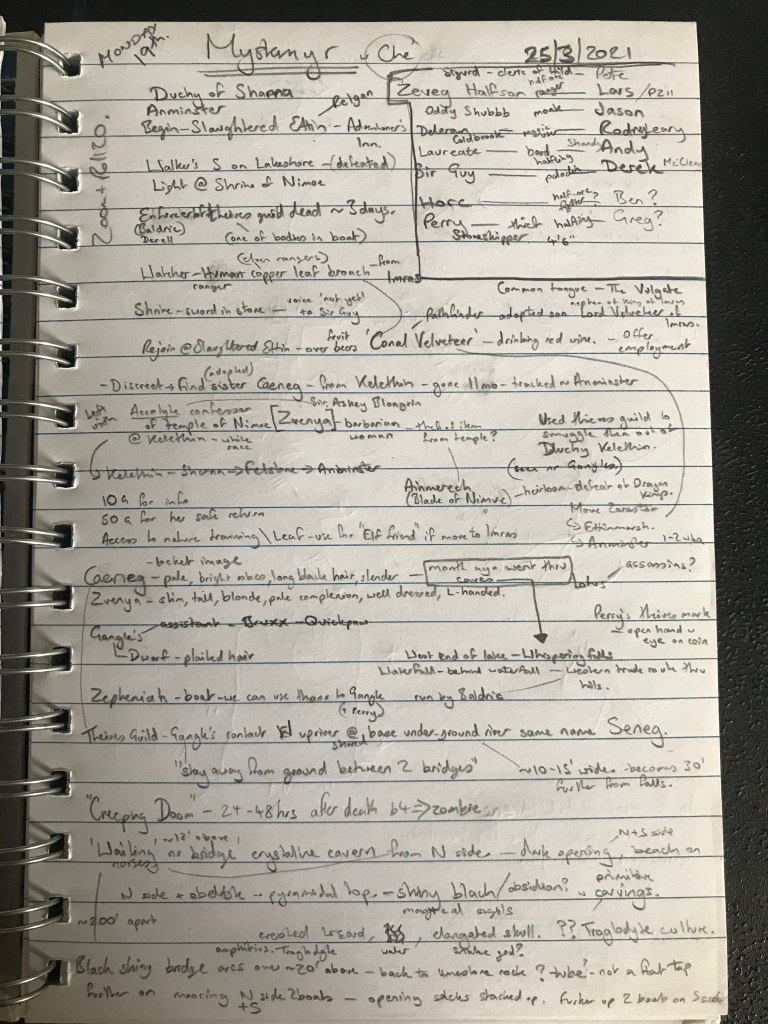 MONDAY 19th.
Mystamyr - Ché
25/3/2021
Zoom + Roll20.
Duchy of Shanna
Anminster
Begin - Slaughtered Ettin - Adventurer's Inn.
Walker's S on Lakeshore - (defeated)
Light @ Shrine of Nimue
Sigurd - cleric of - Pete
Zeveg Halfson - half orc ranger - Lars / Pzii
Oddy Shubbb - monk - Jason
Coldbrook - Rodney
Laureate - bard halfling - Andy
Sir Guy - paladin - Derek
Horc - half-orc fighter - Ben?
Perry Stoneskipper - thief halfling 4'6" - Greg?
Enforcer of theives guild dead ~ 3 days.
(Baldric) Derell (one of bodies in boat)
(elven rangers)
Watcher - Human ranger copper leaf broach - from Imras
Common tongue - The Vulgate
Shrine - sword in stone - voice 'not yet' to Sir Guy
Pathfinder adopted son Lord Velveteer of Imras.
nephew of King of Imras
Rejoin @ Slaughtered Ettin - over fruit beers 'Conal Velveteer' - drinking red wine. - Offer employment
- Discreet → find (adopted) sister Caeneg - from Kelethin - gone 11mo - tracked to Anminster
Sir Askey Blongrin
left with Accolyte confessor of temple of Nimue [Zvenya] - barbarian woman - theft of item from temple?
@ Kelethin - white
Used thieves guild to smuggle them out of Duchy Kelethin.
(seen nr Gangles)
Kelethin - Sharna → Felstone → Anminster
Ainmerech (Blade of Nimue) - heirloom - defeat of Dragon Kings.
10G for info
50G for her safe return
Access to nature training \ Leaf - use for "Elf friend" if move to Imras
Move
↳ Ettinmarsh.
↳ Anminster 1-2 wks.
- locket image
Caeneg - pale, bright robes, long black hair, slender - month ago went thru caves
Lotus assassins?
Zvenya - slim, tall, blonde, pale complexion, well dressed, L-handed.
Perry's theives mark - open hand w eye on coin
Gangle's assistant - Bruxx - Quickpaw
↳ Dwarf - plaited hair
West end of lake - Whispering falls
Waterfall - behind waterfall - western trade route thru hills.
Zepheniah - boat - we can use thanks to Gangle (+ Perry)
run by Baldric
Theives Guild - Gangle's contact upriver @ base under-ground river same name Seneg.
"stay away from ground between 2 bridges"
~10-15' wide - becomes 30' further from falls.
"Creeping Doom" - 24-48hrs after death b4 ⇒ zombie
~12' above
'Wailing' nr bridge' crystalline cavern from N side - dark opening, beach on N+S side
N side + obelisk - pyramidal top. - shiny black / obsidian? w primitive carvings.
magical sigils
~200' apart
crested lizard, water, elongated skull. ?? Troglodyte culture.
amphibius. Troglodyte
Black shiny bridge arcs over ~20' above - back to limestone rock ? 'tube' - not a flat top
further on mooring N+S side 2 boats - opening sacks stacked up. Further up 2 boats on S side